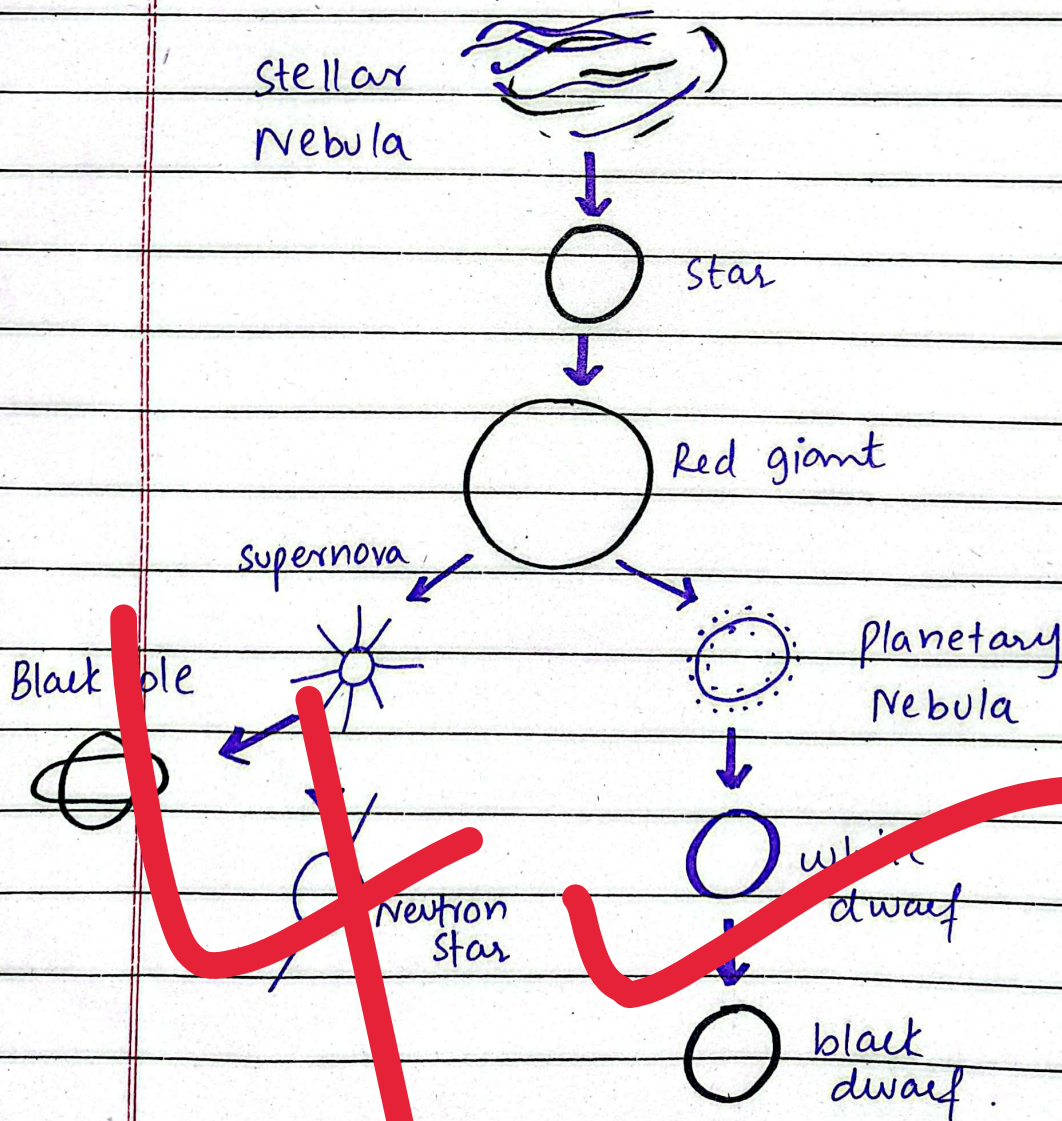 Stellar
Nebula
Star
Red giant
supernova
Planetary
Nebula
Black ole
dwarf
Neutron
Star
black
dwarf.
4